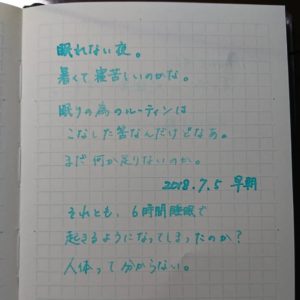 眠れない夜。
暑くて寝苦しいのかな。
眠りの為のルーティンは
こなした筈なんだけどなあ。
まだ何か足りないのか。
2018.7.5 早朝
それとも、6時間睡眠で
起きるようになってしまったのか?
人体って分からない。